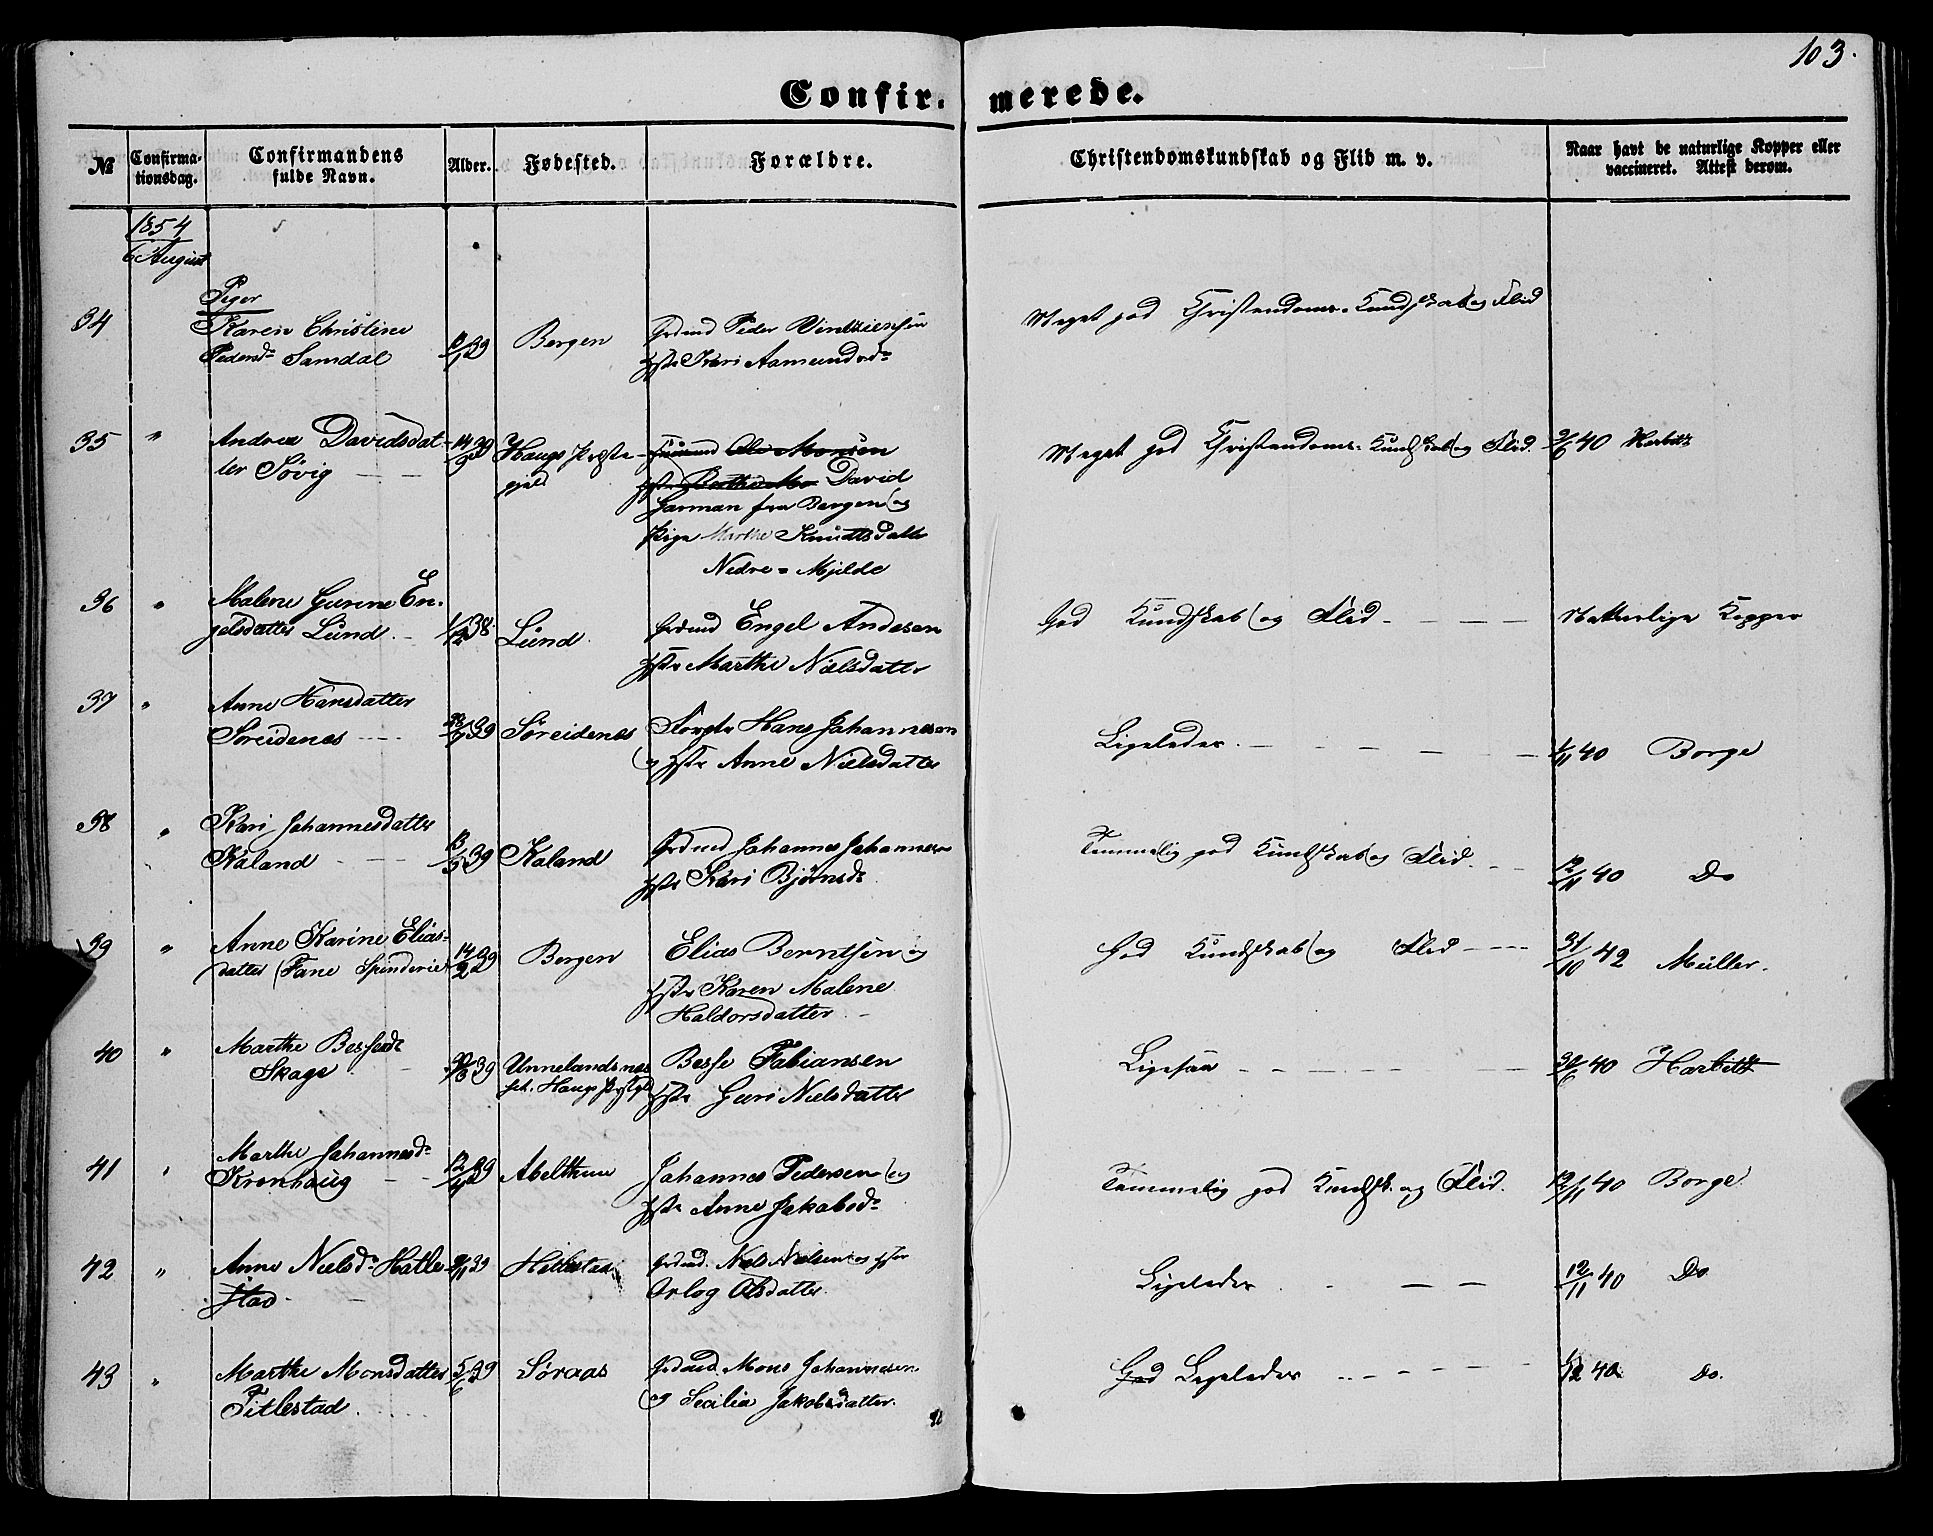 103.
Confir- merede.
№
Confirma-
tionsdag.
Confirmandens
fulde Navn.
Alder.
Fødested.
Forældre.
Christendomskundskab og Flid m. v.
Naar havt de naturlige Kopper eller
vaccineret. Attest derom.
1854
6 August
Piger
34 Karen Christine
Pedersdr Samdal
39 Bergen
Grdmd Peder
Hstr Kari Aamundsdr
Meget god Christendoms-Kundskab og Flid
35 " Andrea Davidsdat-
ter Søvig
14/9 39 Haugs Præste-
gjeld
Ole Monsen
Hstr Berthe Mo David
Garman fra Bergen og
Pige Marthe Knudtsdatter
Nedre-Mjelde
Meget god Christendoms-Kundskab og Flid. 9/6 40
36 " Malene Gurine En-
gelsdatter Lund.
1/12 38. Lund.
Grdmd Engel Andersen
Hstr Marthe Nielsdatter
God Kundskab og Flid
Naturlige Kopper
37 " Anne Hansdatter
Søreidenæs
39 Søreidenæs
Hans Johannesen
og Hstr Anne Nielsdatter
Ligeledes. 1/11 40 Borge
38 " Kari Johannesdatter
Kaland
13/3 39 Kaland
Grdmd Johannes Johannesen
Hstr Kari Bjørnsdr
Temmelig god Kundskab og Flid. 12/11 40 Do
39 " Anne Karine Elias-
datter (Fane Spinderie)
14/2 39 Bergen
Elias Berntsen og
Hstr Karen Malene
Haldorsdatter.
God Kundskab og Flid 31/10 42 Müller.
40 " Marthe Bessesdr
Skage
39 Unnelandsnæs
Haugs Prstgld
Besse Fabiansen
Hstr Guri Nielsdatter
Ligesaa 30/6 40 Harbitz
41 " Marthe Johannesdr
Kronhaug
12/4 39 Abelthun
Johannes Pedersen og
Hstr Anne Jakobsdr
Temmelig god Kundsk. og Flid. 12/11 40 Borge
42 " Anne Nielsdr Hatle-
stad
9/11 39 Hatlestad
Grdmd. Niels Nielsen og Hstr
Orlog Olsdatter.
Ligeledes 12/11 40 Do
43 " Marthe Monsdatter
Titlestad.
5/6 39 Søraas
Grdmd. Mons Johannesen
og Secilia Jakobsdatter.
God Ligeledes 40 Do.